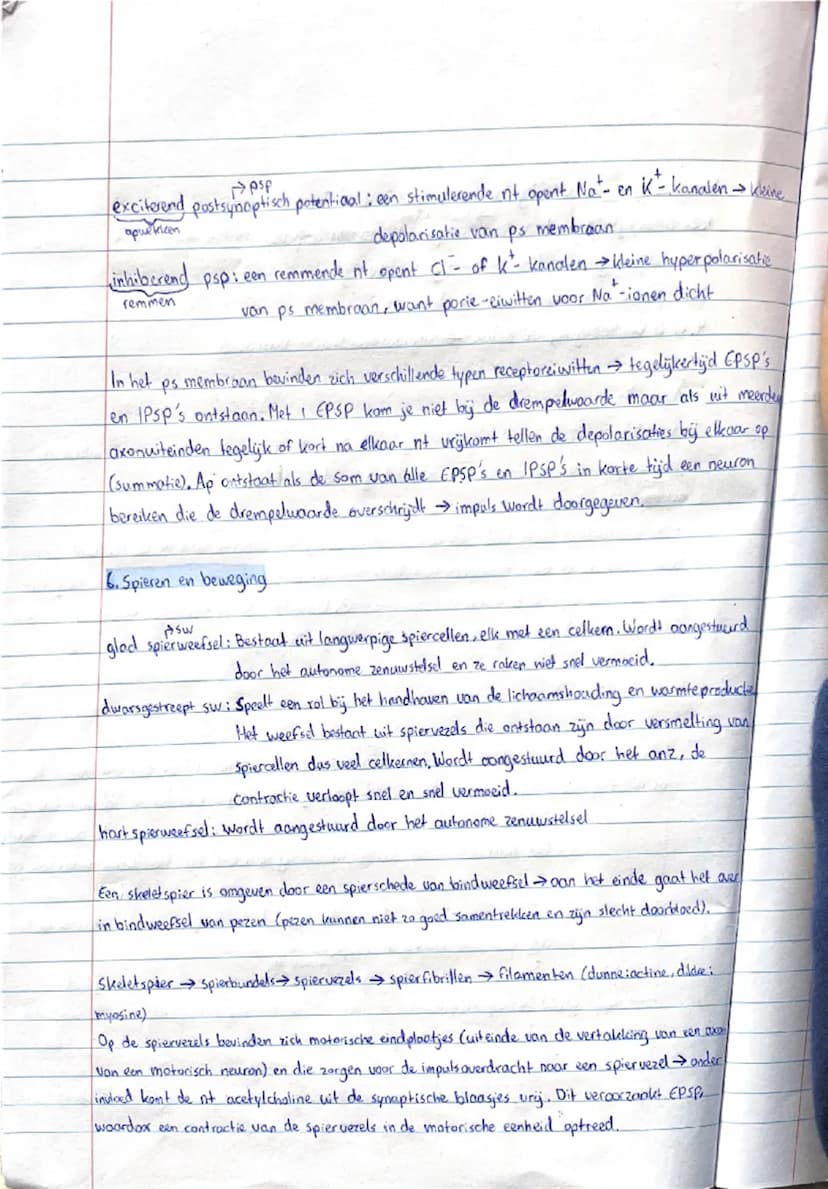 → psp
exciterend postsynaptisch potentiaal : een stimulerende nt opent Na⁺- en K⁺- kanalen → kleine
opwekken
depolarisatie van ps membraan
inhiberend psp : een remmende nt opent Cl⁻- of K⁺- kanalen → kleine hyperpolarisatie
remmen
van ps membraan, want porie-eiwitten voor Na⁺-ionen dicht
In het ps membraan bevinden zich verschillende typen receptoreiwitten → tegelijkertijd EPSP's
en IPSP's ontstaan. Met 1 EPSP kom je niet bij de drempelwaarde maar als uit meerdere
axonuiteinden tegelijk of kort na elkaar nt vrijkomt tellen de depolarisaties bij elkaar op
(summatie). Ap ontstaat als de som van alle EPSP's en IPSP's in korte tijd een neuron
bereiken die de drempelwaarde overschrijdt → impuls wordt doorgegeven.
6. Spieren en beweging
→ sw
glad spierweefsel : Bestaat uit langwerpige spiercellen, elk met een celkern. Wordt aangestuurd
door het autonome zenuwstelsel en ze raken niet snel vermoeid.
dwarsgestreept sw : Speelt een rol bij het handhaven van de lichaamshouding en warmteproductie
Het weefsel bestaat uit spiervezels die ontstaan zijn door versmelting van
spiercellen dus veel celkernen. Wordt aangestuurd door het anz, de
contractie verloopt snel en snel vermoeid.
hartspierweefsel : wordt aangestuurd door het autonome zenuwstelsel
Een skeletspier is omgeven door een spierschede van bindweefsel → aan het einde gaat het over
in bindweefsel van pezen (pezen kunnen niet zo goed samentrekken en zijn slecht doorbloed).
Skeletspier → spierbundels → spiervezels → spierfibrillen → filamenten (dunne : actine, dikke :
myosine)
Op de spiervezels bevinden zich motorische eindplaatjes (uiteinde van de vertakking van een axon
van een motorisch neuron) en die zorgen voor de impulsoverdracht naar een spiervezel → onder
invloed komt de nt acetylcholine uit de synaptische blaasjes vrij. Dit veroorzaakt EPSP,
waardoor een contractie van de spiervezels in de motorische eenheid optreed.